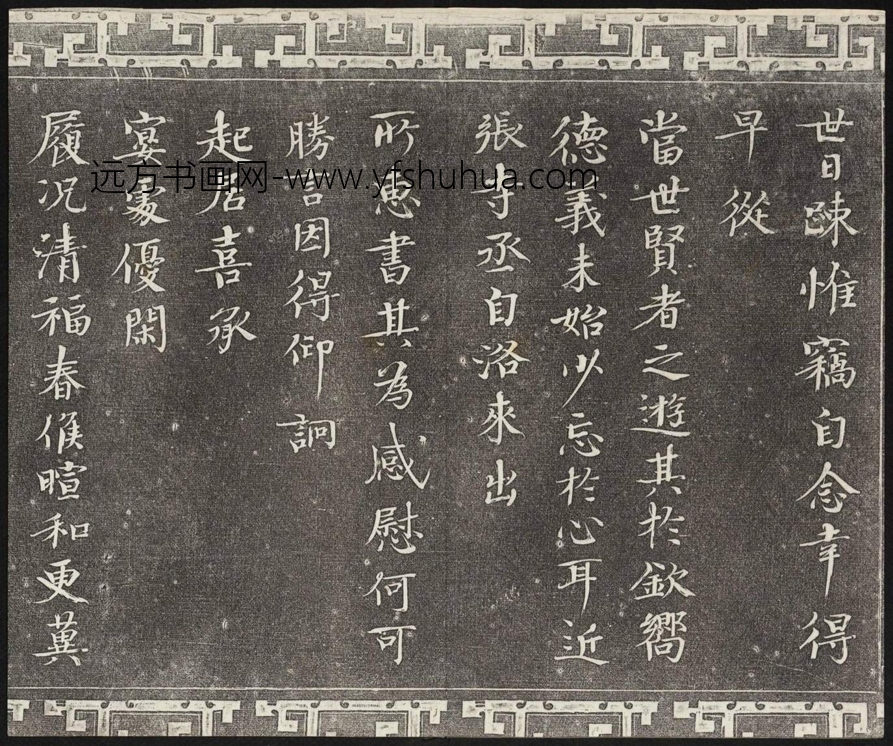 世日踈惟竊自念幸得
早從
當世賢者之遊其於欽嚮
德義未始少忘於心耳近
張寺丞自洛來出
所惠書其為感慰何可
勝言因得仰詗
起居喜承
宴處優閑
履况清福春候暄和更冀
远方书画网-www.yfshuhua.com